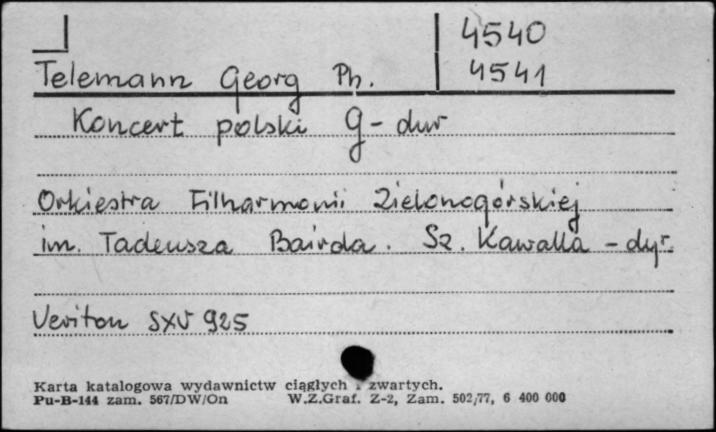 4540
Telemann Georg Ph. 4541
Koncert polski G-dur
Orkiestra Filharmonii Zielonogórskiej
im. Tadeusza Bairda. Sz. Kawalla - dyr.
Veriton SXV 925
Karta katalogowa wydawnictw ciągłych i zwartych.
Pu-B-144 zam. 567/DW/On W.Z.Graf. Z-2, Zam. 502/77, 6 400 000